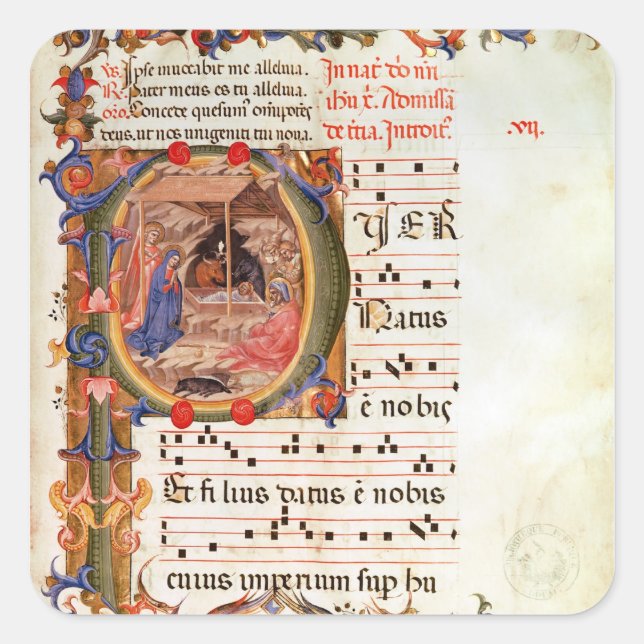 V͞s. Ipse invccabit me alleluia.
R. Pater meus es tu alleluia.
oro. Concede quesum͞ om͞ipotẽs
deus, ut nos unigeniti tui noua.
In nat̾ dõ nr̃i
ihũ x̃. Ad missã
de t̃tia. Introit̾. .vij.
PUER
Natus
ẽ nobis
Et fi lius datus ẽ nobis
cuius imperium sup̱ hu